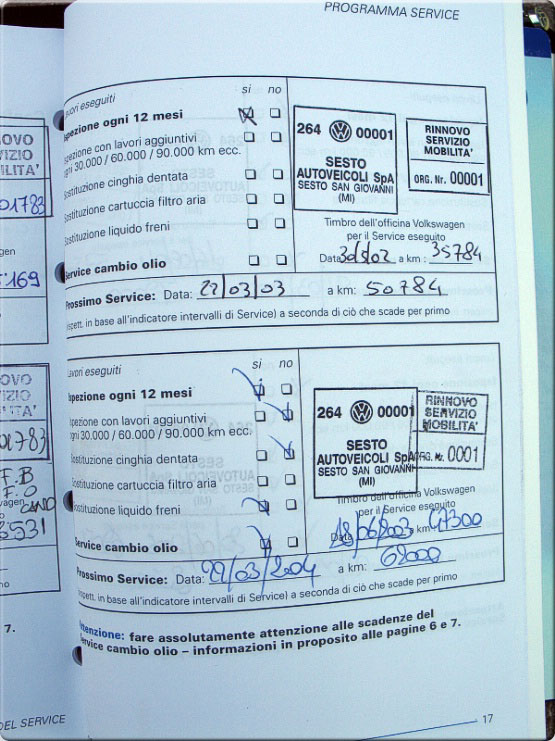 PROGRAMMA SERVICE
si no
avori eseguiti
spezione ogni 12 mesi
spezione con lavori aggiuntivi
ogni 30.000 / 60.000 / 90.000 km ecc.
ostituzione cinghia dentata
ostituzione cartuccia filtro aria
ostituzione liquido freni
Service cambio olio
264 00001
SESTO
AUTOVEICOLI SpA
SESTO SAN GIOVANNI
(MI)
RINNOVO
SERVIZIO
MOBILITA'
ORG. Nr. 00001
Timbro dell'officina Volkswagen
per il Service eseguito
Data a km: 35784
Prossimo Service: Data: 22/03/03 a km: 50784
ispett. in base all'indicatore intervalli di Service) a seconda di ciò che scade per primo
si no
Lavori eseguiti
spezione ogni 12 mesi
spezione con lavori aggiuntivi
ogni 30.000 / 60.000 / 90.000 km ecc.
ostituzione cinghia dentata
ostituzione cartuccia filtro aria
ostituzione liquido freni
Service cambio olio
264 00001
SESTO
AUTOVEICOLI SpA
SESTO SAN GIOVANNI
(MI)
RINNOVO
SERVIZIO
MOBILITA'
ORG. Nr. 0001
Timbro dell'officina Volkswagen
per il Service eseguito
Data 18/06/2003 km 47300
Prossimo Service: Data: 22/03/2004 a km: 62000
ispett. in base all'indicatore intervalli di Service) a seconda di ciò che scade per primo
Attenzione: fare assolutamente attenzione alle scadenze del
Service cambio olio – informazioni in proposito alle pagine 6 e 7.
17
NOVO
VIZIO
BILITA'
01783
gen
5169
no
OVO
VIZIO
ILITA'
01783
F.B
F.O
CANO
wagen
8531
no
7.
DEL SERVICE